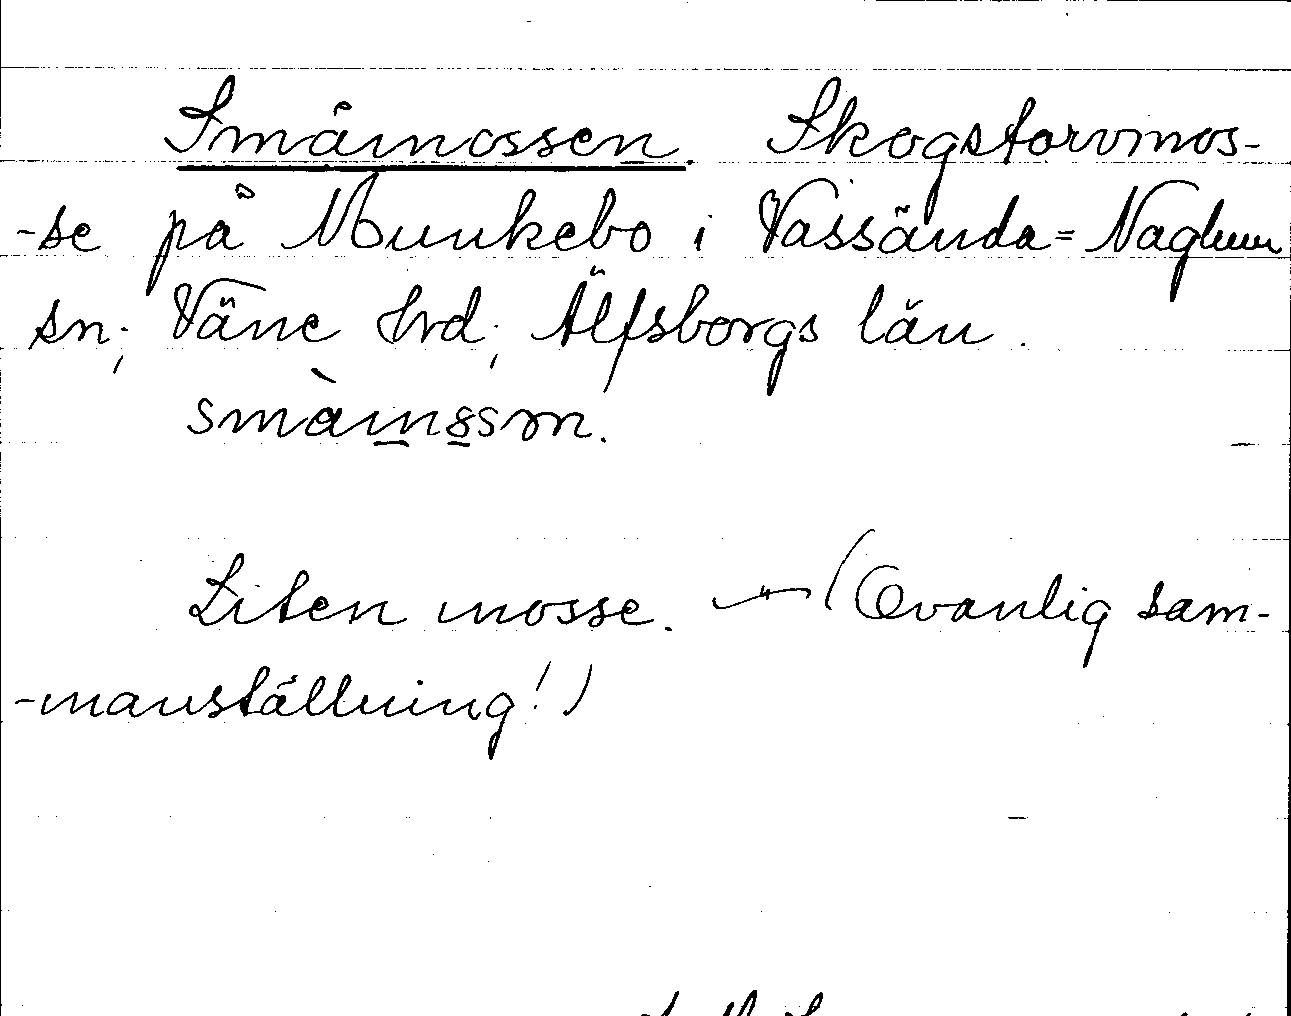 Småmossen. Skogstorvmos-
-se på Munkebo i Vassända=Naglum
sn; Väne hrd; Älfsborgs län.
Liten mosse. — (Ovanlig sam-
-manställning!)